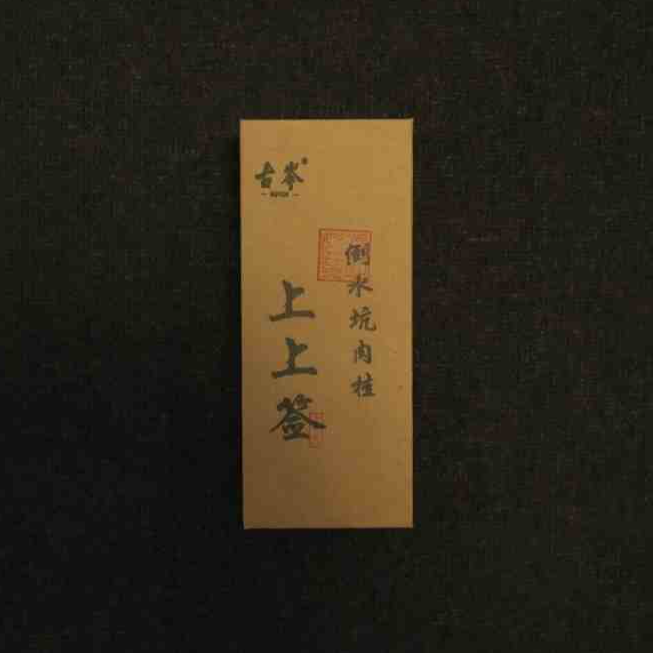 古岑®
倒水坑肉桂
上上签